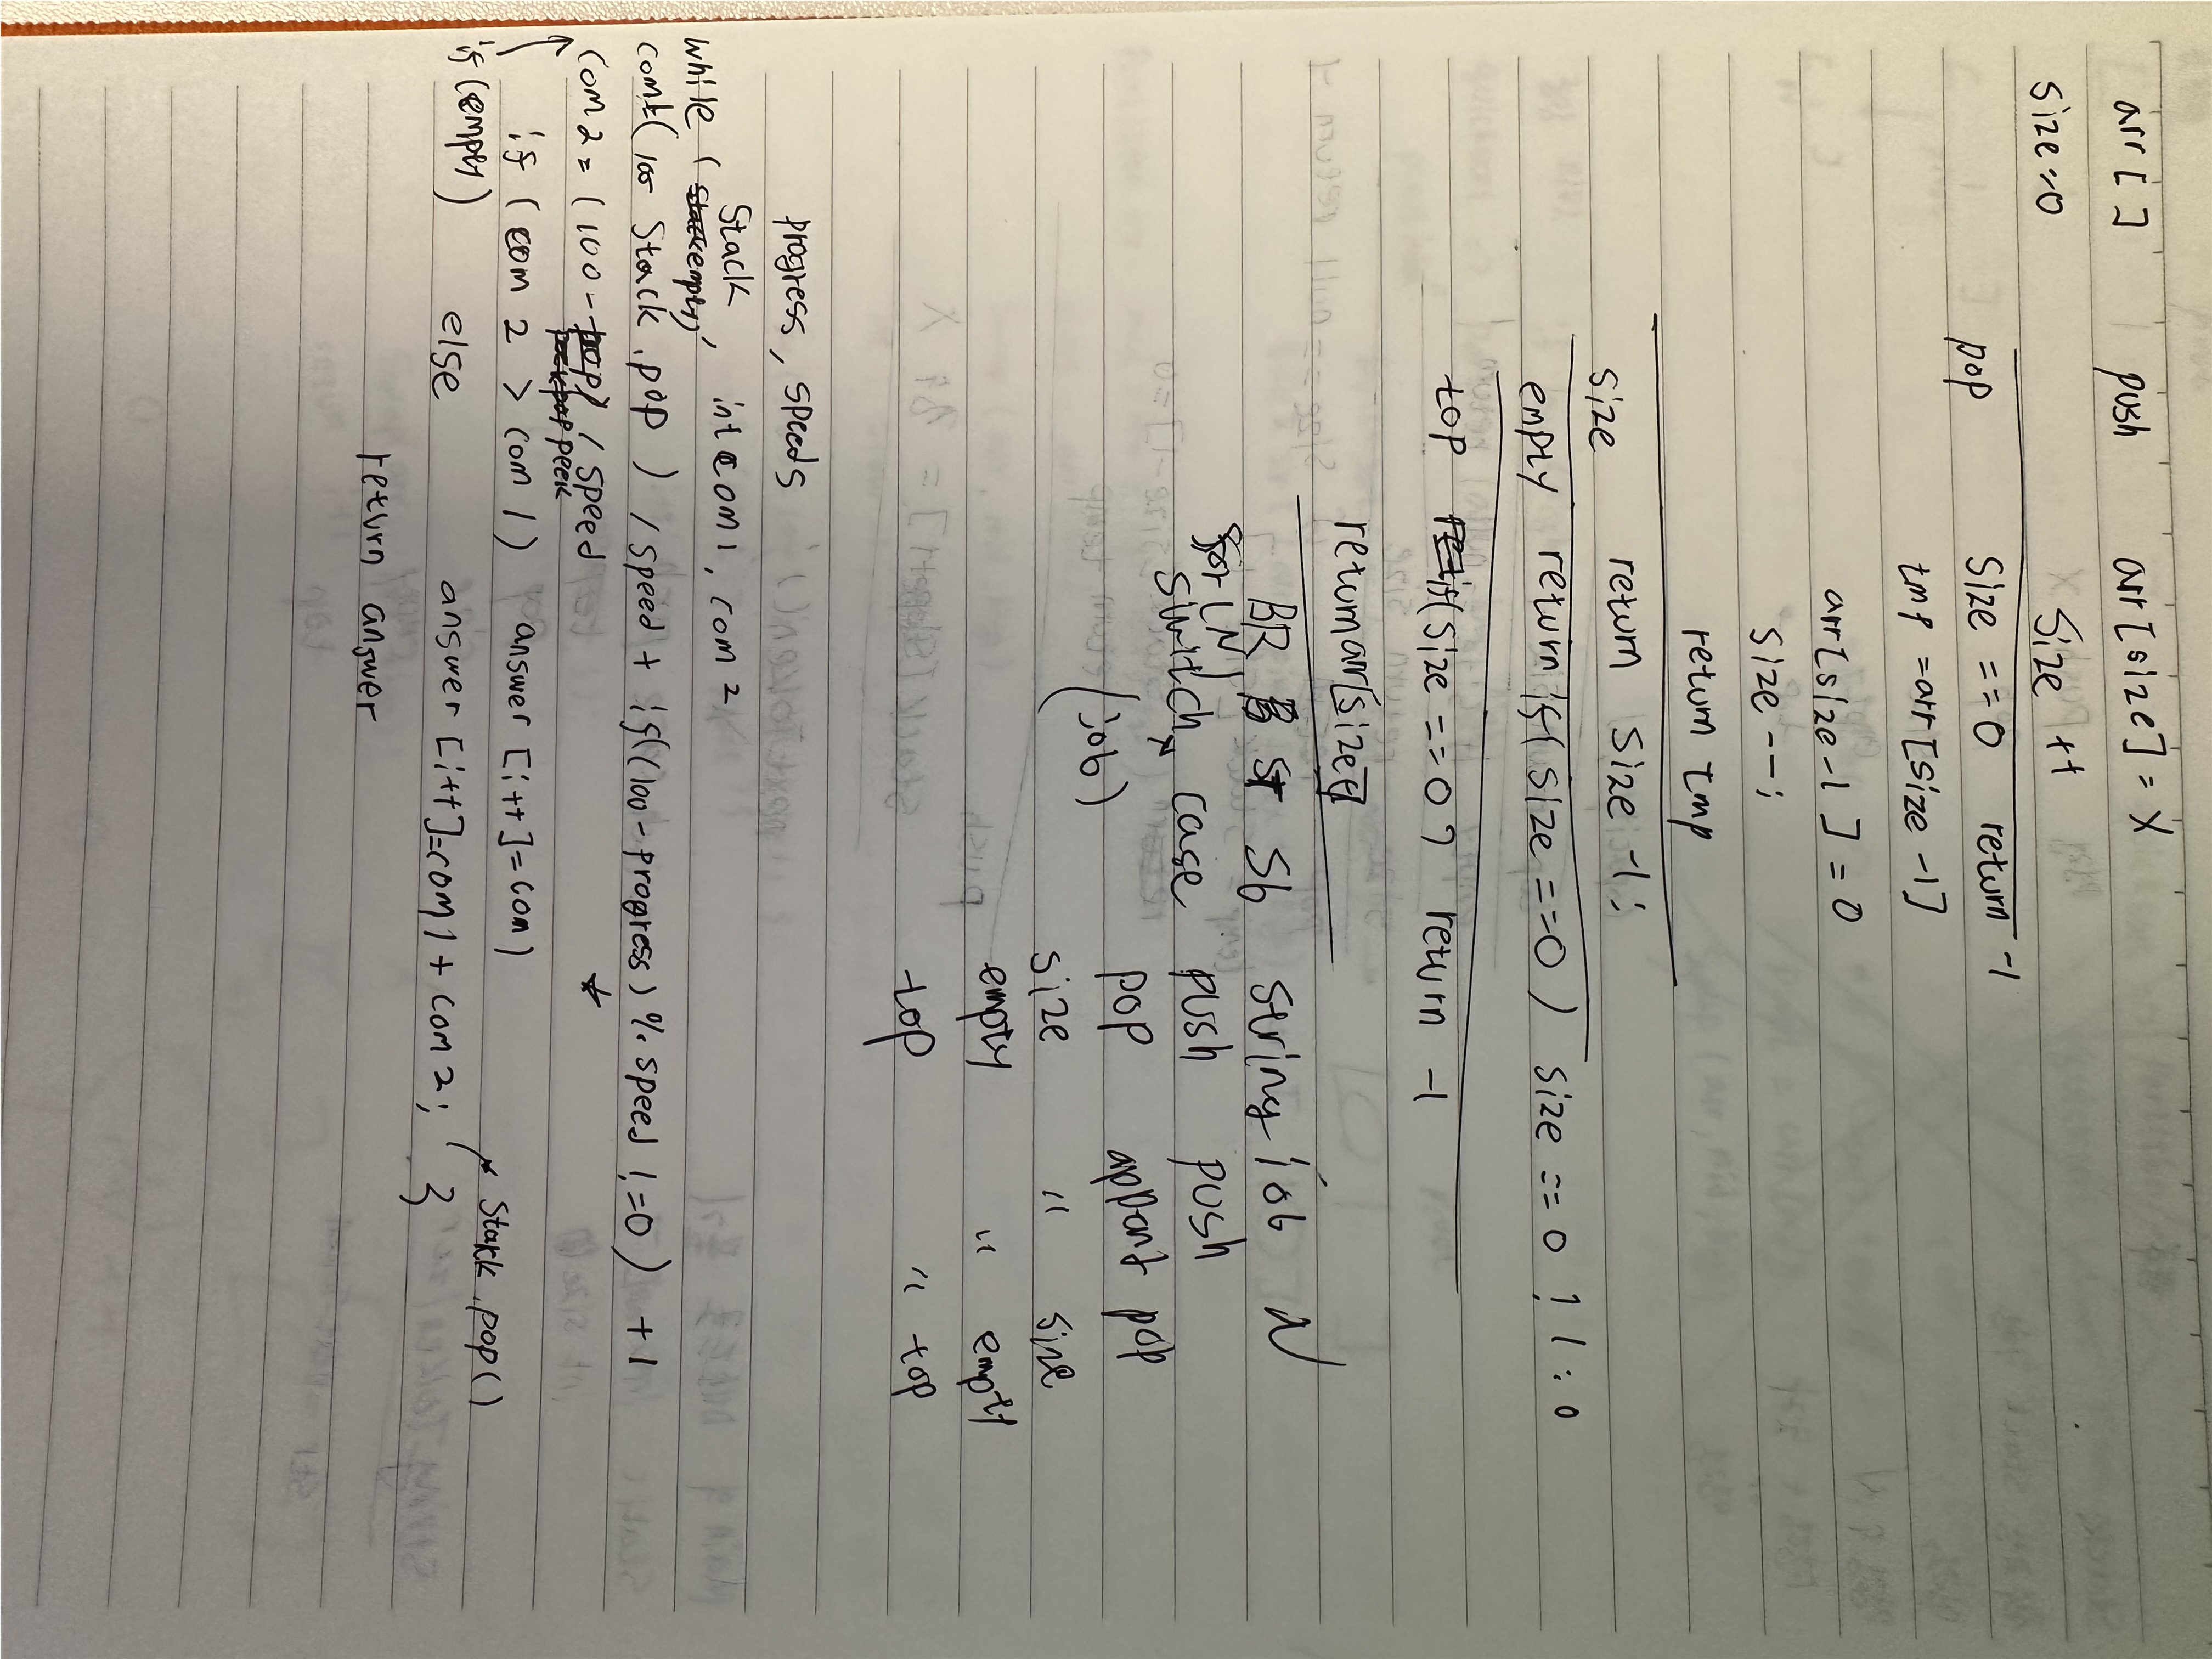 arr [ ] push arr [size] = x
size=0 size ++
pop size == 0 return -1
tmp = arr [size -1]
arr[size -1] = 0
size --;
return tmp
size return size -1;
empty return if( size ==0 ) size == 0 ? 1 : 0
top if(size ==0) return -1
return arr[size]
BR sb string job N
for (N)
switch case push push
(job) pop append pop
size " size
empty " empty
top " top
progress, speeds
stack, int com1, com2
while ( empty)
com1=( 100 stack.pop ) / speed + if((100-progress) % speed != 0) +1
com2 = (100- peek / speed
if ( com 2 > com 1) answer [i++] = com1
if(empty) else answer [i++]=com1 + com 2; } stack.pop()
return answer